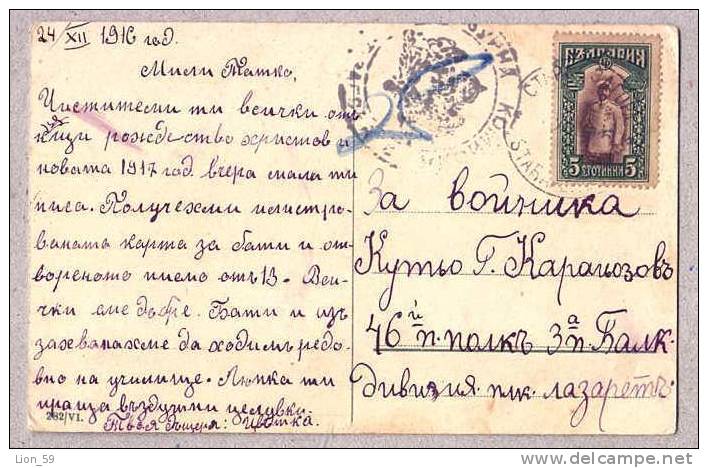 24/XII 1916 год.
Мили Татко,
Чистители ти всички отъ
кѫщи рождество христово и
новата 1917 год. вчера мама ти
писа. Получехми илюстро-
ваната карта за бати и от-
вореното писмо отъ 13 - Вси-
чки сме добре. Бати и изъ
захванахме да ходимъ редо-
вно на училище. Люпка ти
праща въздушни целувки.
Твоя дъщеря: Цвѣтка.
282/VI.
БЪЛГАРИЯ
5 СТОТИНКИ 5
За войника
Кутьо Г. Карагьозовъ
46й п. полкъ 3а п. Балк.
дивизия. пол. лазаретъ
Lion_59
www.delcampe.net